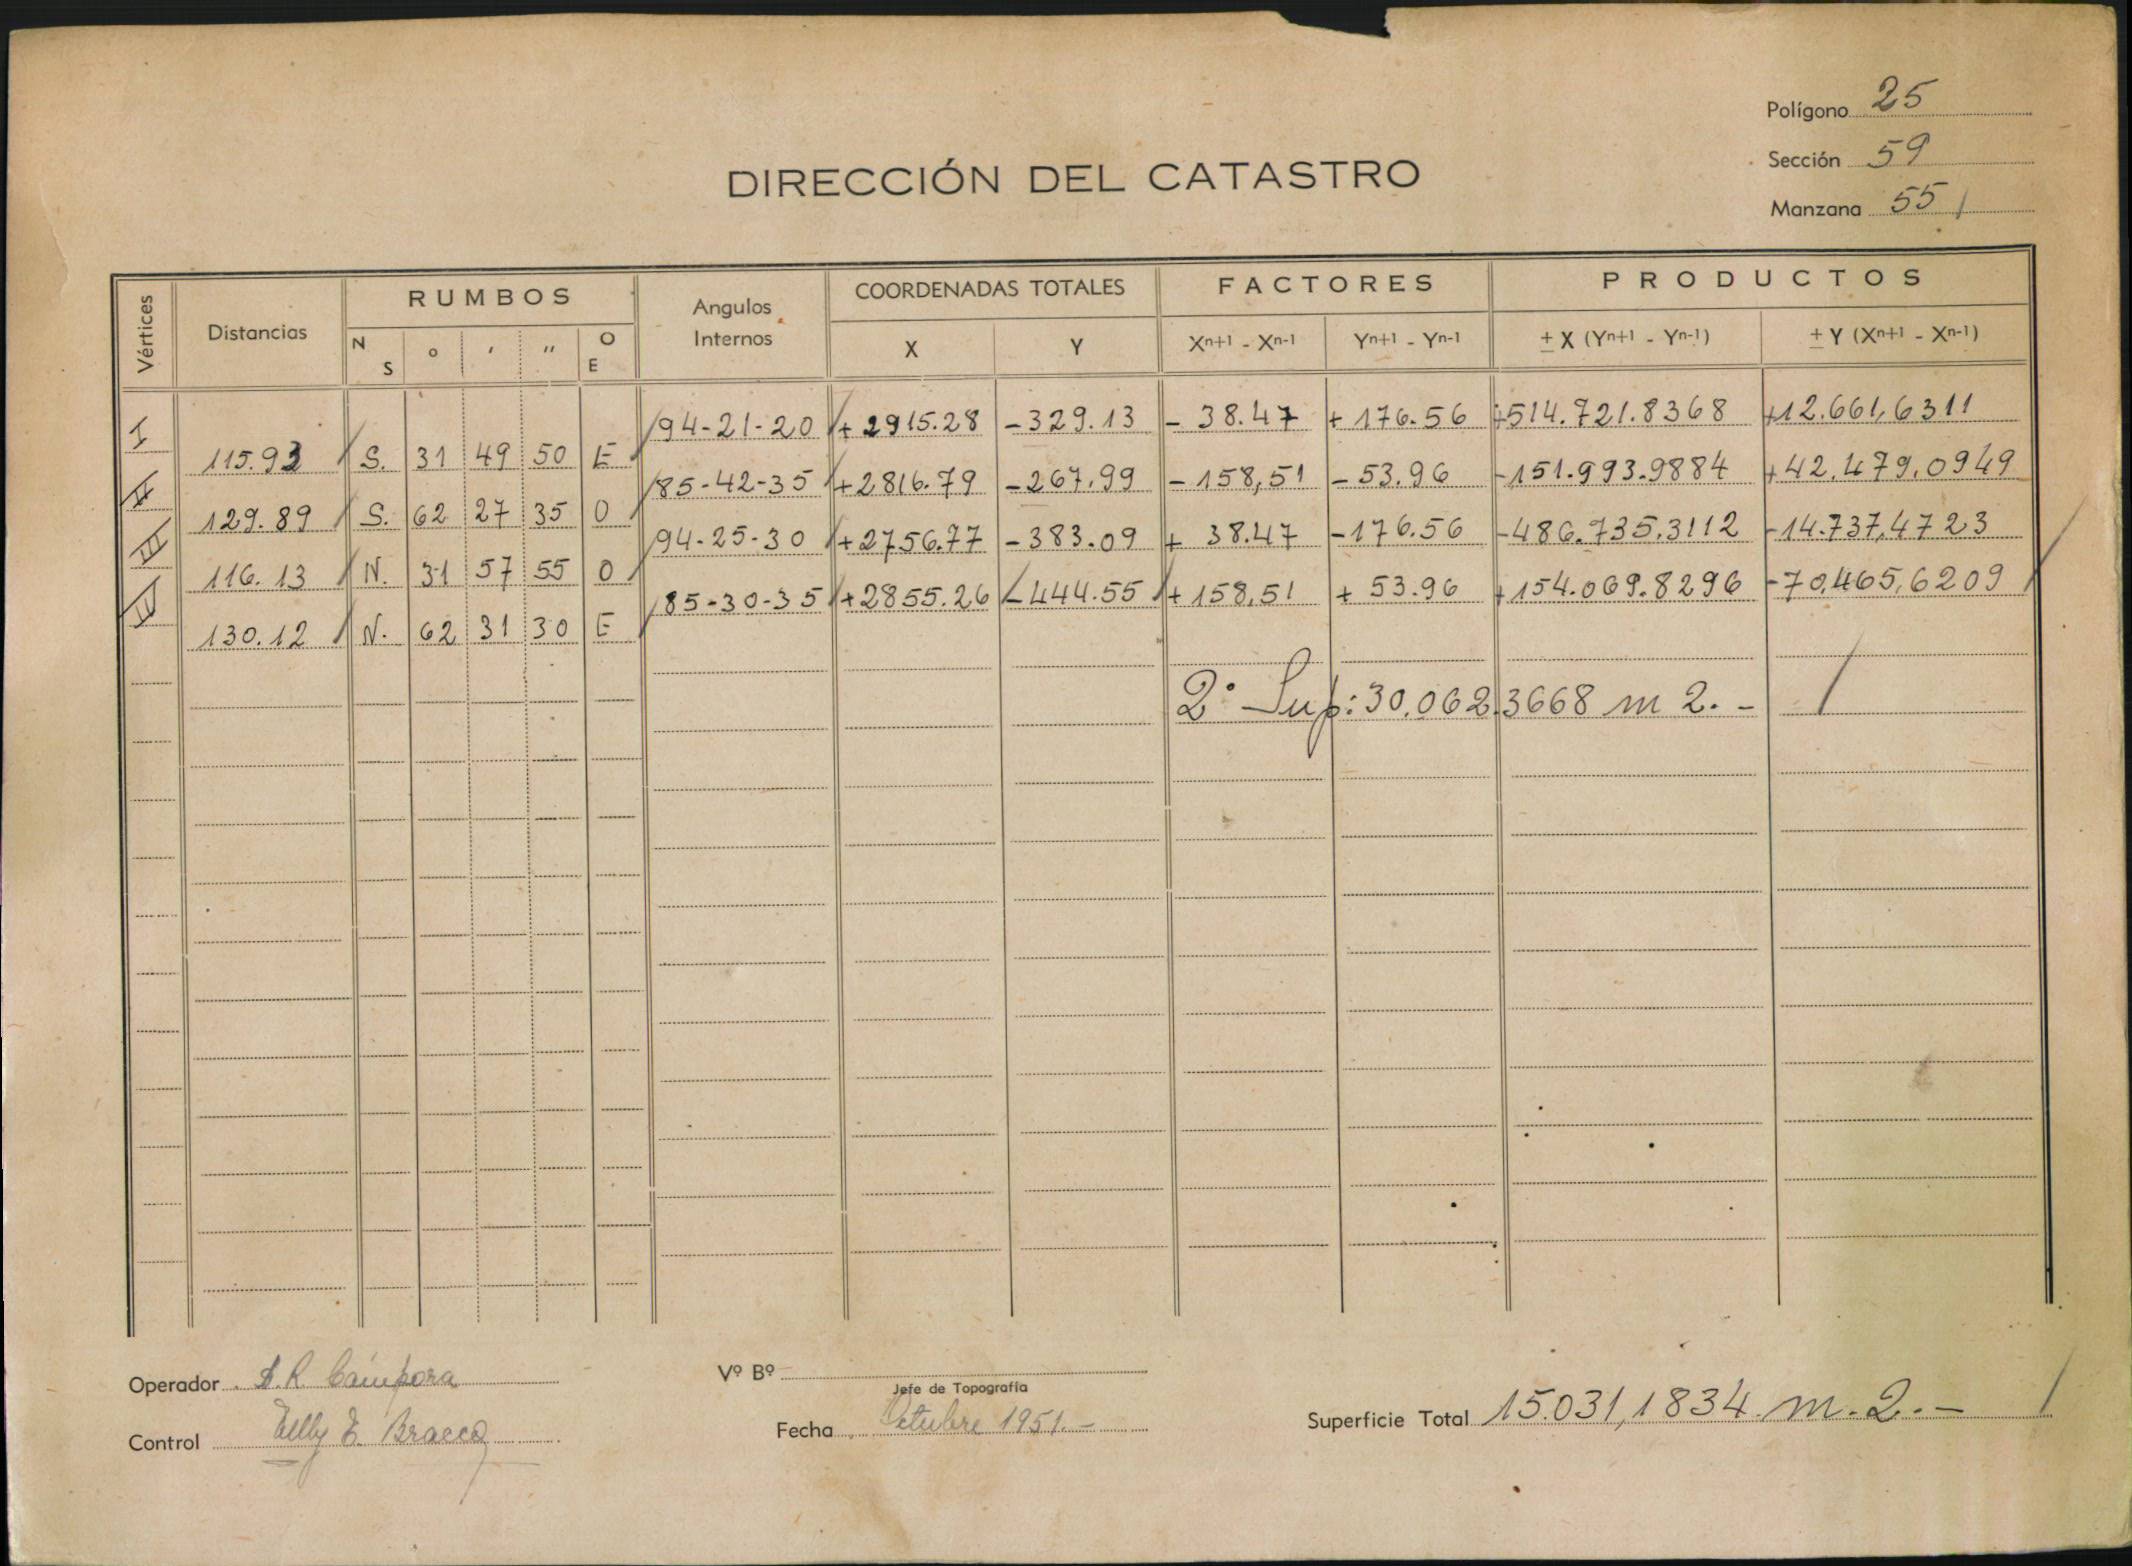 Polígono 25
Sección 59
Manzana 55
DIRECCIÓN DEL CATASTRO
Vértices Distancias RUMBOS Angulos Internos COORDENADAS TOTALES FACTORES PRODUCTOS
N S o ' '' O E X Y Xn+1 - Xn-1 Yn+1 - Yn-1 ± X (Yn+1 - Yn-1) ± Y (Xn+1 - Xn-1)
I 94-21-20 +2915.28 -329.13 - 38.47 + 176.56 +514.721.8368 +12.661,6311
115.93 S. 31 49 50 E
II 85-42-35 +2816.79 -267.99 - 158,51 - 53.96 -151.993.9884 +42.479,0949
129.89 S. 62 27 35 O
III 94-25-30 +2756.77 -383.09 + 38.47 -176.56 -486.735.3112 -14.737,4723
116.13 N. 31 57 55 O
IV 85-30-35 +2855.26 -444.55 +158,51 + 53.96 +154.069.8296 -70,465,6209
130.12 N. 62 31 30 E
2° Sup: 30.062.3668 m 2.-
Operador A.R Cámpora
Control Elly E. Bracco
Vº Bº
Jefe de Topografía
Fecha Octubre 1951.-
Superficie Total 15.031,1834 m.2.-